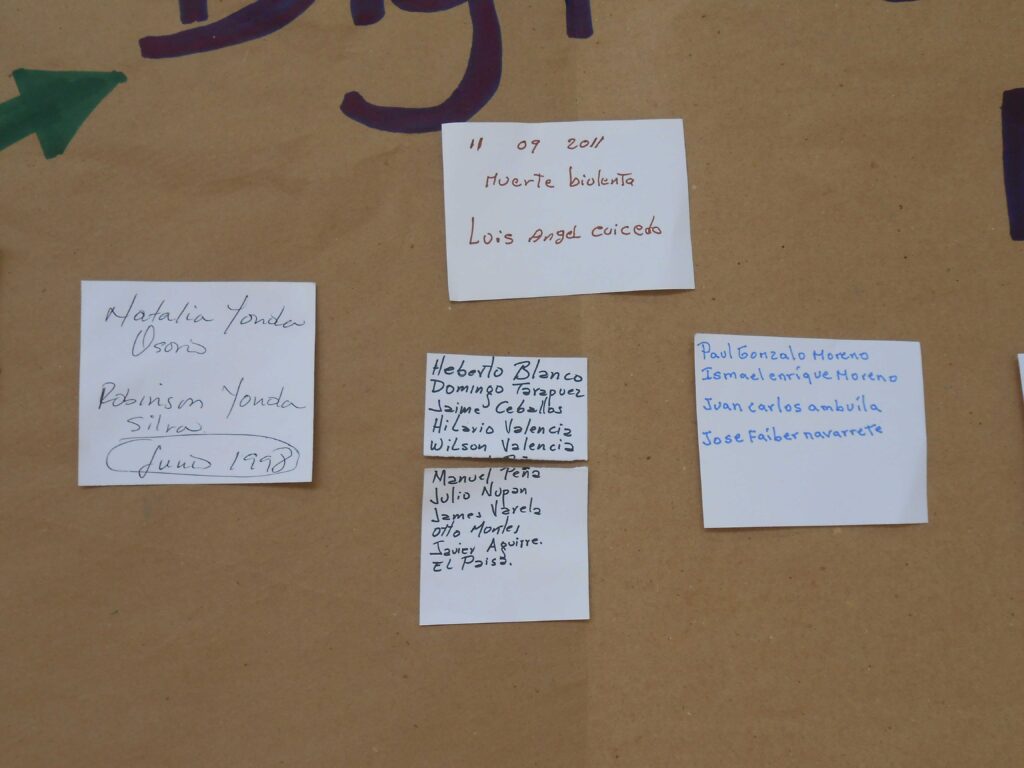 11 09 2011
Muerte biolenta
Luis Angel Cuicedo
Natalia Yonda
Osorio
Robinson Yonda
Silva
Junio 1998
Heberto Blanco
Domingo Tarapuez
Jaime Ceballos
Hilario Valencia
Wilson Valencia
Manuel Peña
Julio Nupan
James Varela
Otto Montes
Javier Aguirre.
El Paisa.
Paul Gonzalo Moreno
Ismael enríque Moreno
Juan carlos ambuíla
Jose Faiber navarrete